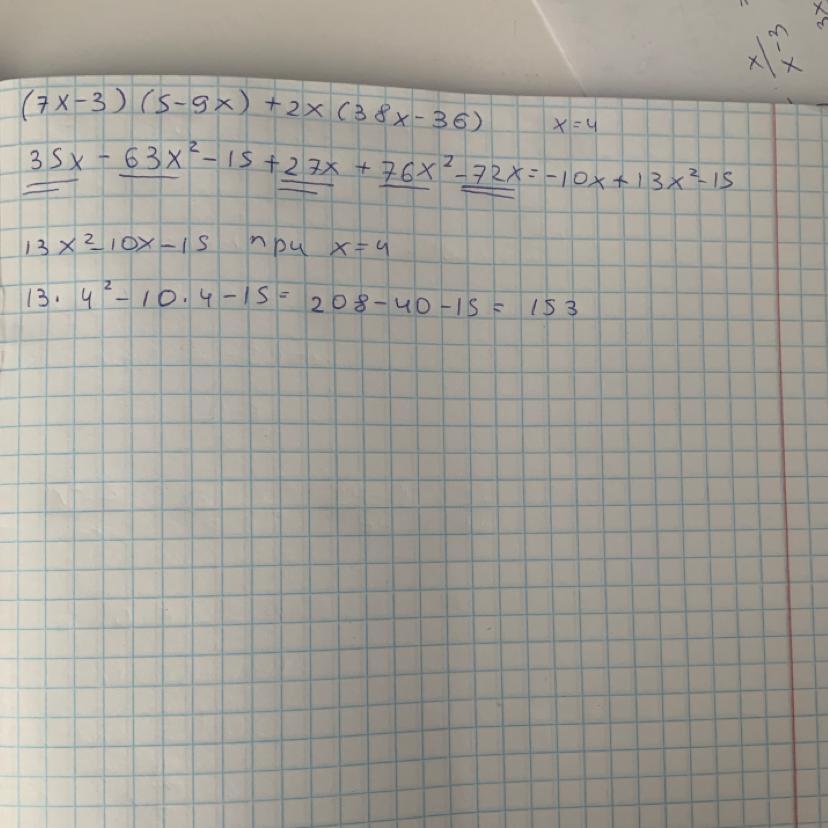 x/x-3
3x
(7x-3)(5-9x)+2x(38x-36) x=4
35x-63x²-15+27x+76x²-72x=-10x+13x²-15
13x²-10x-15 при x=4
13·4²-10·4-15=208-40-15=153